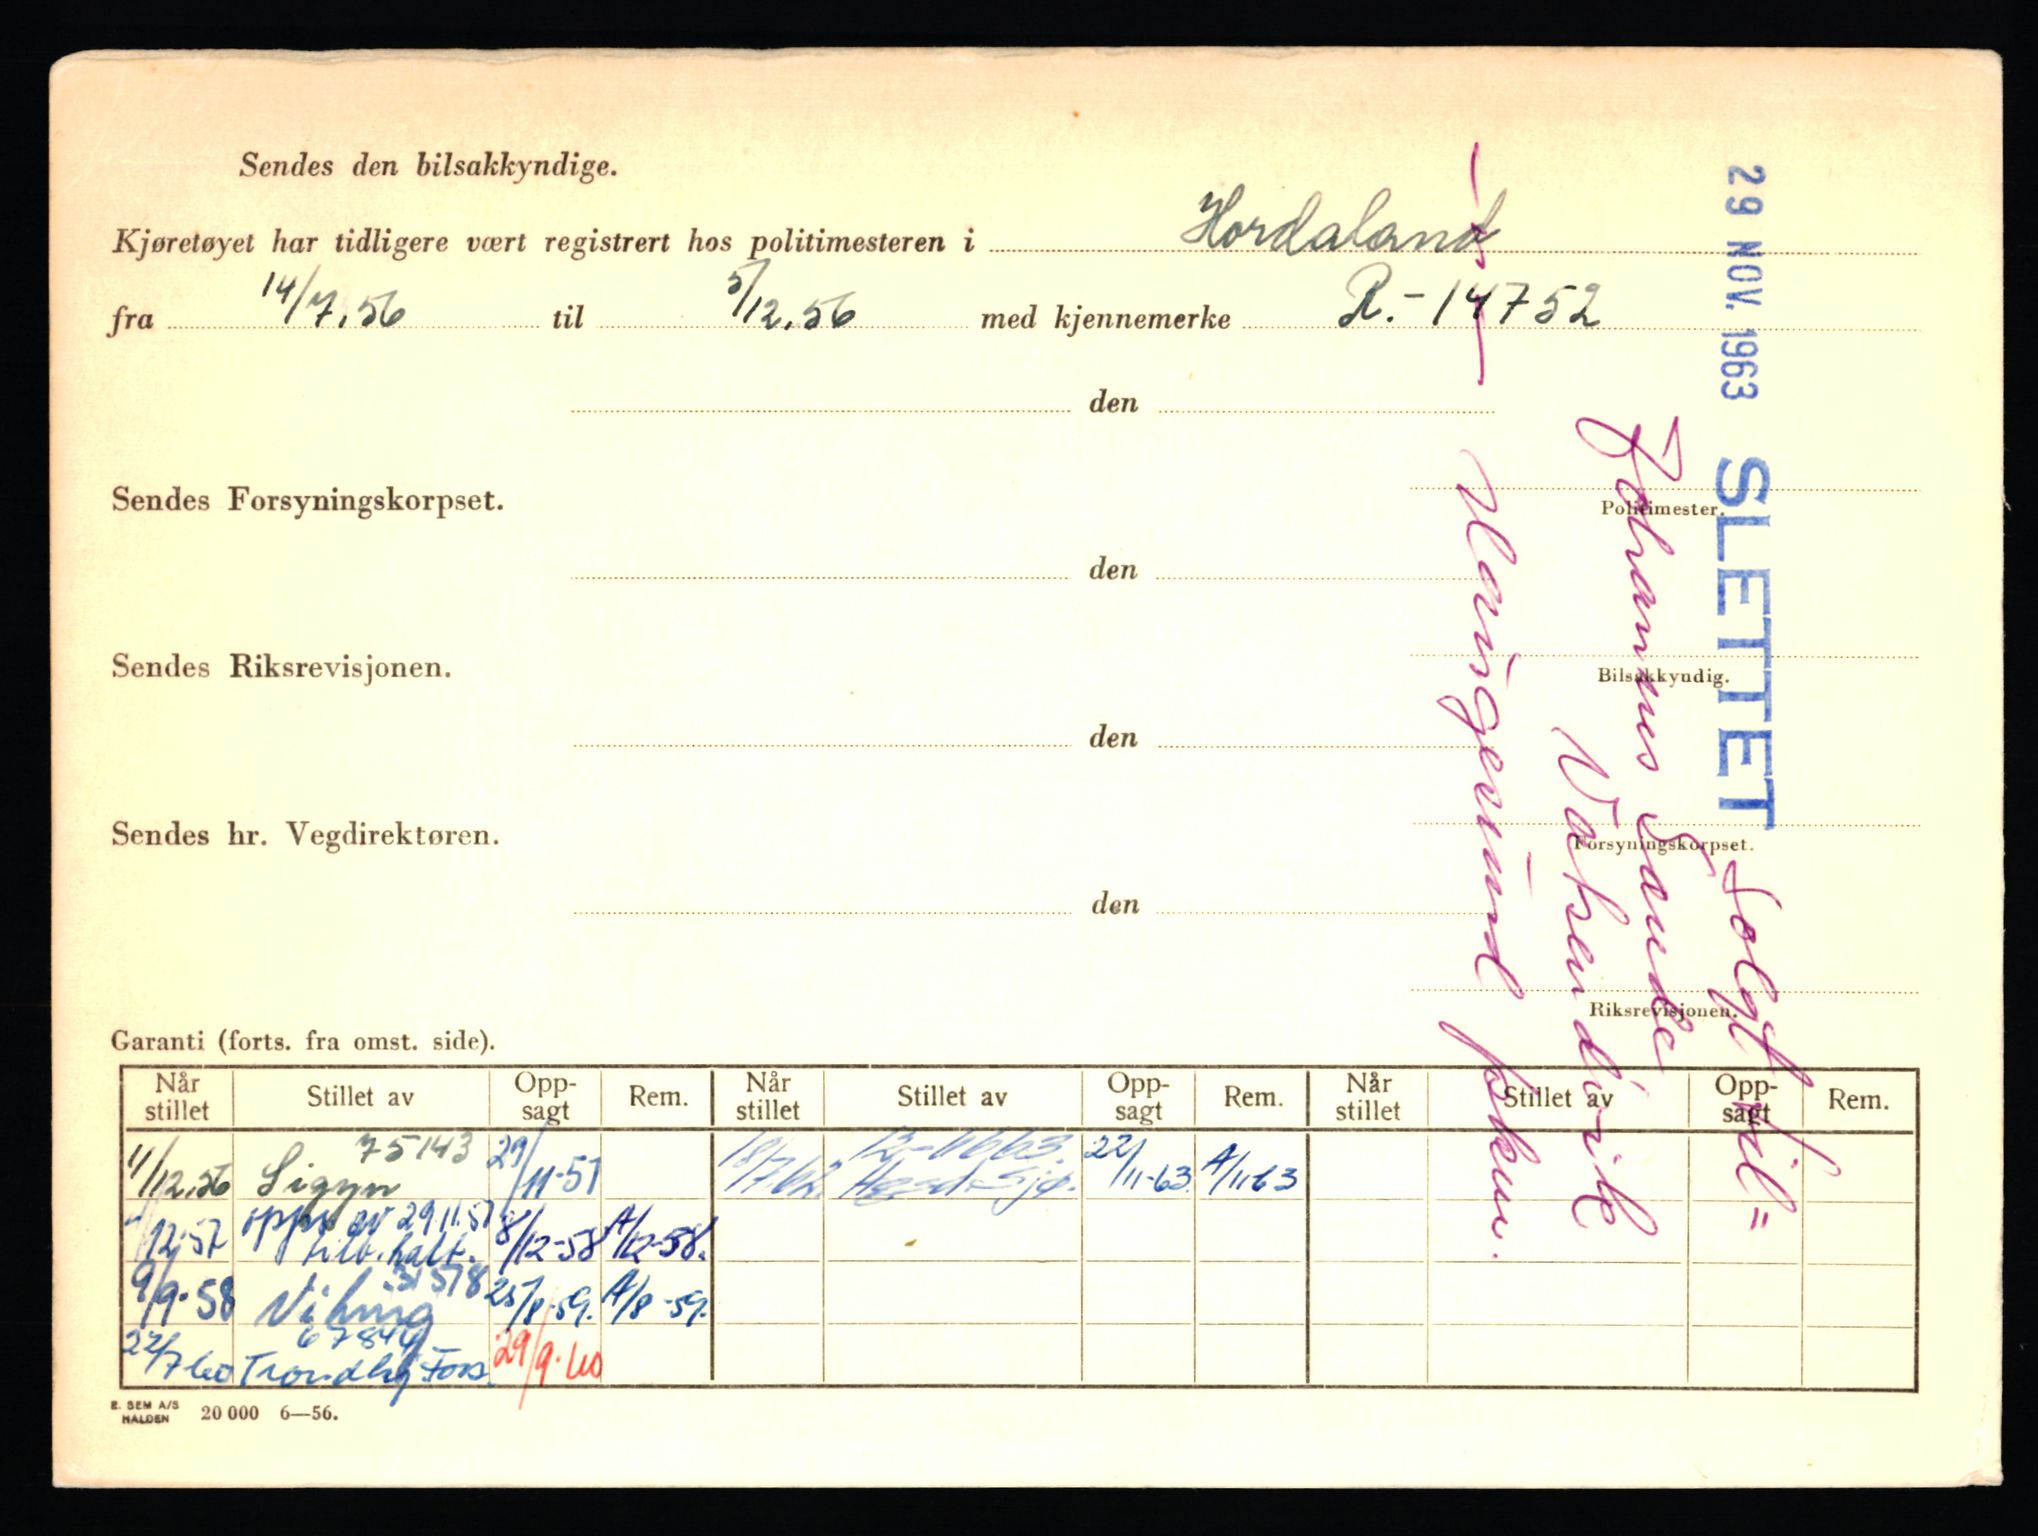 Sendes den bilsakkyndige.
Kjøretøyet har tidligere vært registrert hos politimesteren i Hordaland
fra 14/7.56 til 5/12.56 med kjennemerke R.-14752
den
Sendes Forsyningskorpset.
Politimester.
den
Sendes Riksrevisjonen.
Bilsakkyndig.
den
Sendes hr. Vegdirektøren.
Forsyningskorpset.
den
Riksrevisjonen.
29 NOV. 1963 SLETTET
Solgt til =
Johannes Sande
Vatsendvik
Haugesund
Garanti (forts. fra omst. side).
Når stillet Stillet av Opp-sagt Rem. Når stillet Stillet av Opp-sagt Rem. Når stillet Stillet av Opp-sagt Rem.
11/12.56 Sigyn 75143 29/11-57 18/7.62. 22/11-63. A/11-63
/12-57 opps av 29.11.57 tilb. kalt. 8/12-58 A/12-58.
9/9-58 Viking 31578 25/8-59. A/8-59.
22/7 60 Trondhj Fors. 67844 29/9-60
E. SEM A/S
HALDEN 20 000 6—56.